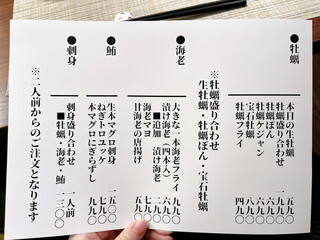 ●牡蠣
本日の生牡蠣 五九〇
牡蠣盛り合わせ
牡蠣ぽん 六九〇
牡蠣ケジャン 六九〇
宝石牡蠣 八九〇
牡蠣フライ 四九〇
※牡蠣盛り合わせ
生牡蠣・牡蠣ぽん・宝石牡蠣
●海老
大きな一本海老フライ 九九〇
漬け海老(四本入) 六九〇
■追加 漬け海老
海老マヨ 七九〇
甘海老の唐揚げ 五九〇
●鮪
生本マグロ刺身 一五〇〇
ねぎトロユッケ 九九〇
本マグロにぎらずし 七九〇
●刺身
刺身盛り合わせ 一人前
■牡蠣・海老・鮪 一三〇〇
※二人前からのご注文となります